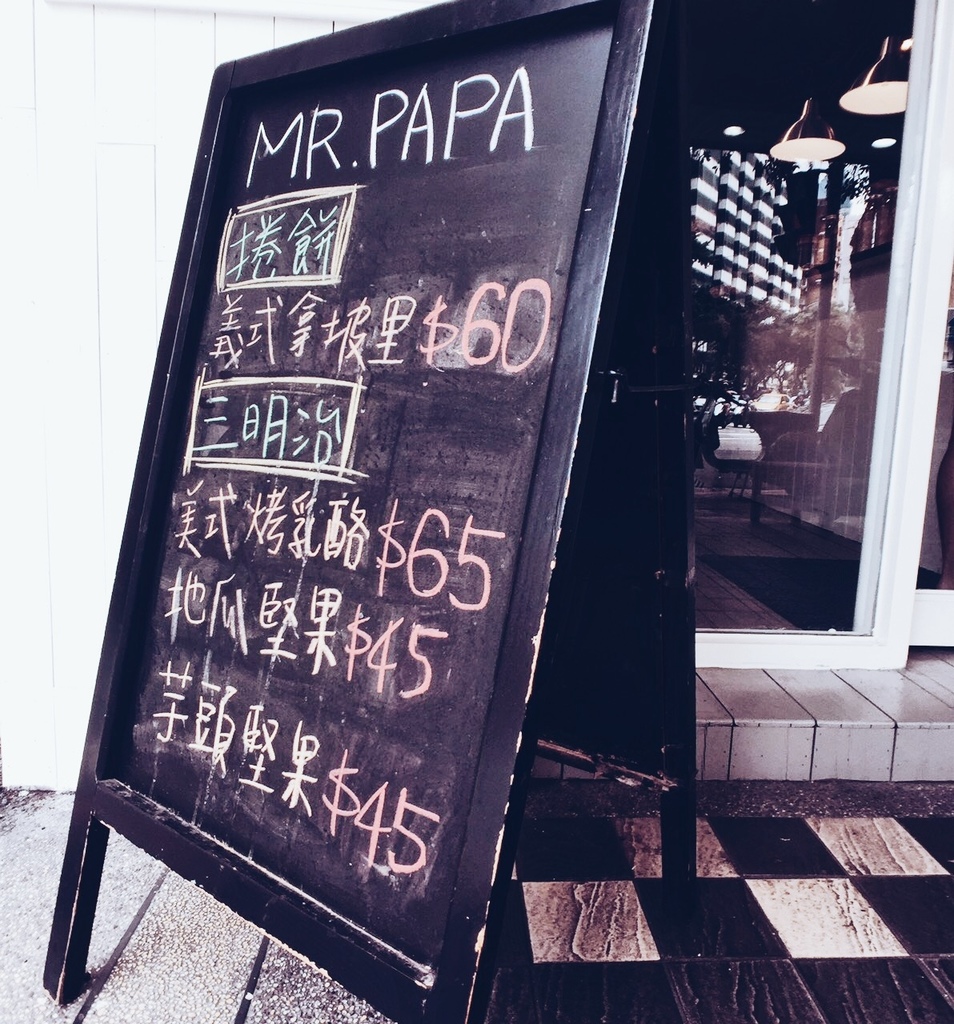 MR.PAPA
捲餅
義式拿坡里 $60
三明治
美式烤乳酪 $65
地瓜堅果 $45
芋頭堅果 $45